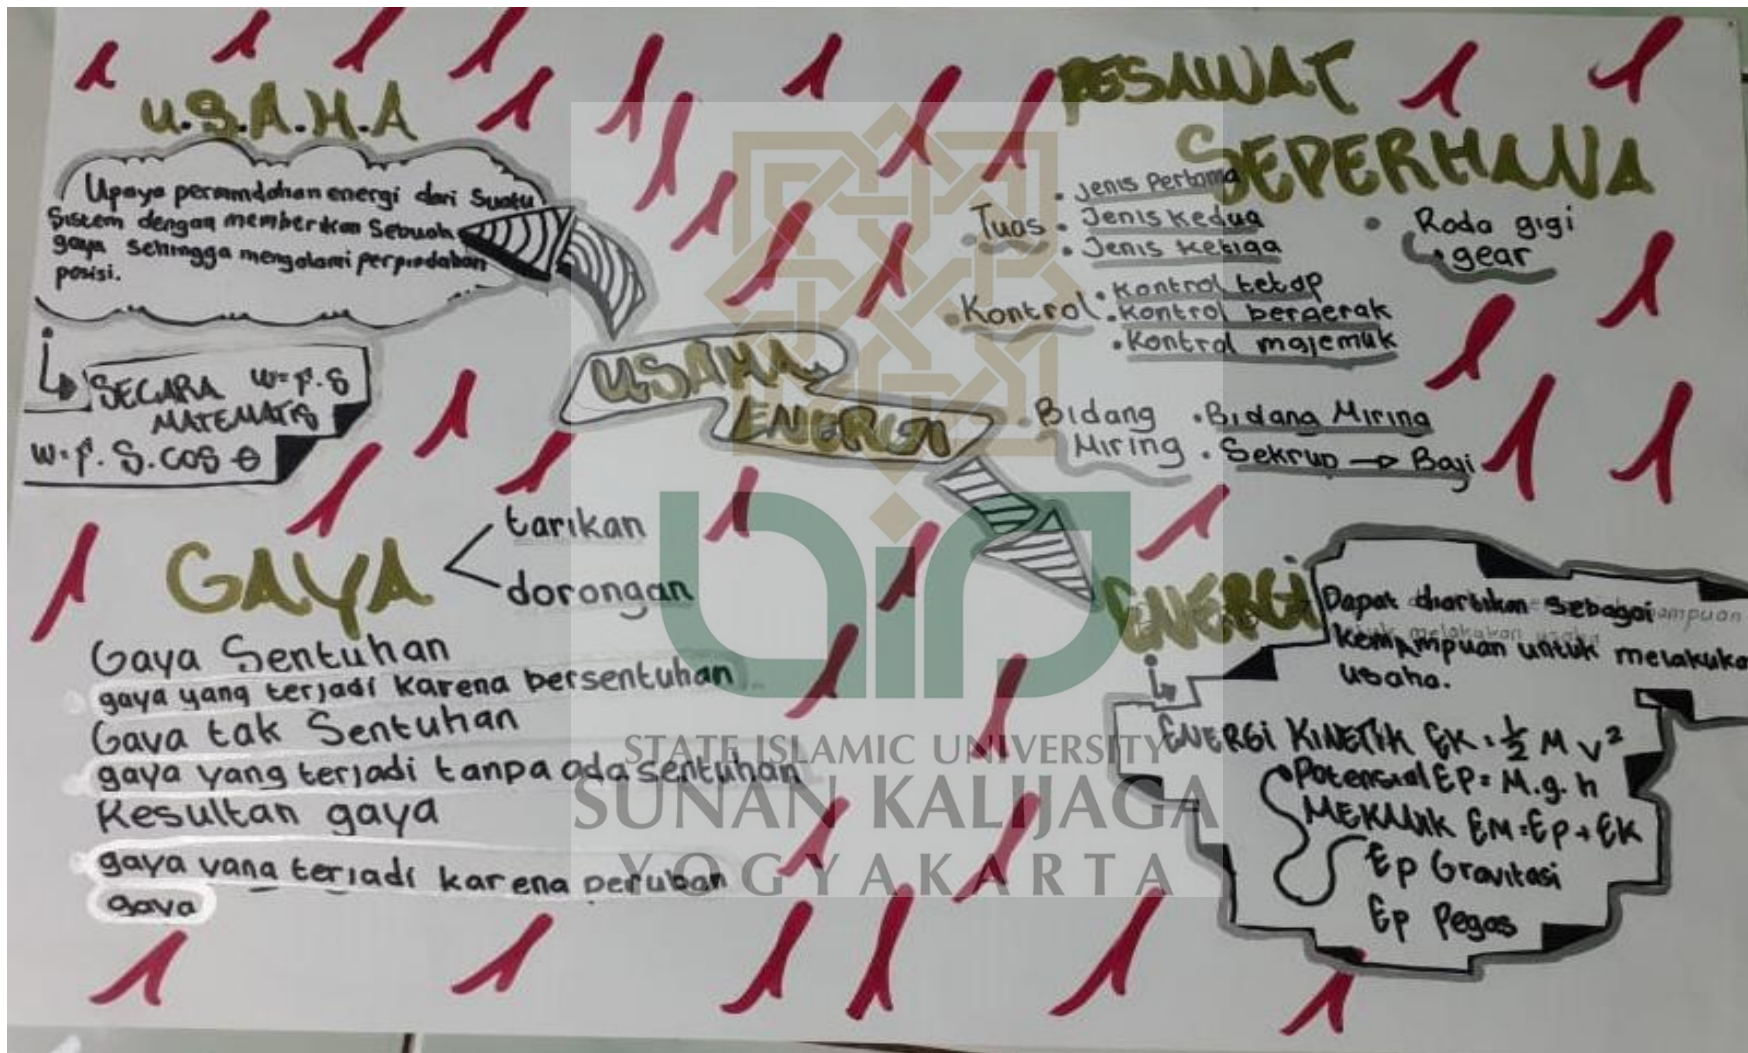 U.S.A.H.A
Upaya permindahan energi dari Suatu
Sistem dengan memberikan Sebuah
gaya sehingga mengalami perpindahan
posisi.
SECARA W=F.S
MATEMATIS
W=F.S.COS θ
USAHA
ENERGI
PESAWAT
SEDERHANA
Tuas
• Jenis Pertama
• Jenis Kedua
• Jenis Ketiga
• Roda gigi
• gear
• Kontrol
• Kontrol tetap
• Kontrol bergerak
• Kontrol majemuk
• Bidang
Miring
• Bidang Miring
• Sekrup → Baji
GAYA
tarikan
dorongan
Gaya Sentuhan
gaya yang terjadi karena bersentuhan
Gaya tak Sentuhan
gaya yang terjadi tanpa ada sentuhan
Resultan gaya
gaya yang terjadi karena peruban
gaya
ENERGI
Dapat diartikan sebagai
kemampuan untuk melakuka
usaha.
ENERGI KINETIK EK = ½ M V²
Potensial EP = M.g.h
MEKANIK EM = EP + EK
Ep Gravitasi
Ep Pegas
STATE ISLAMIC UNIVERSITY
SUNAN KALIJAGA
YOGYAKARTA